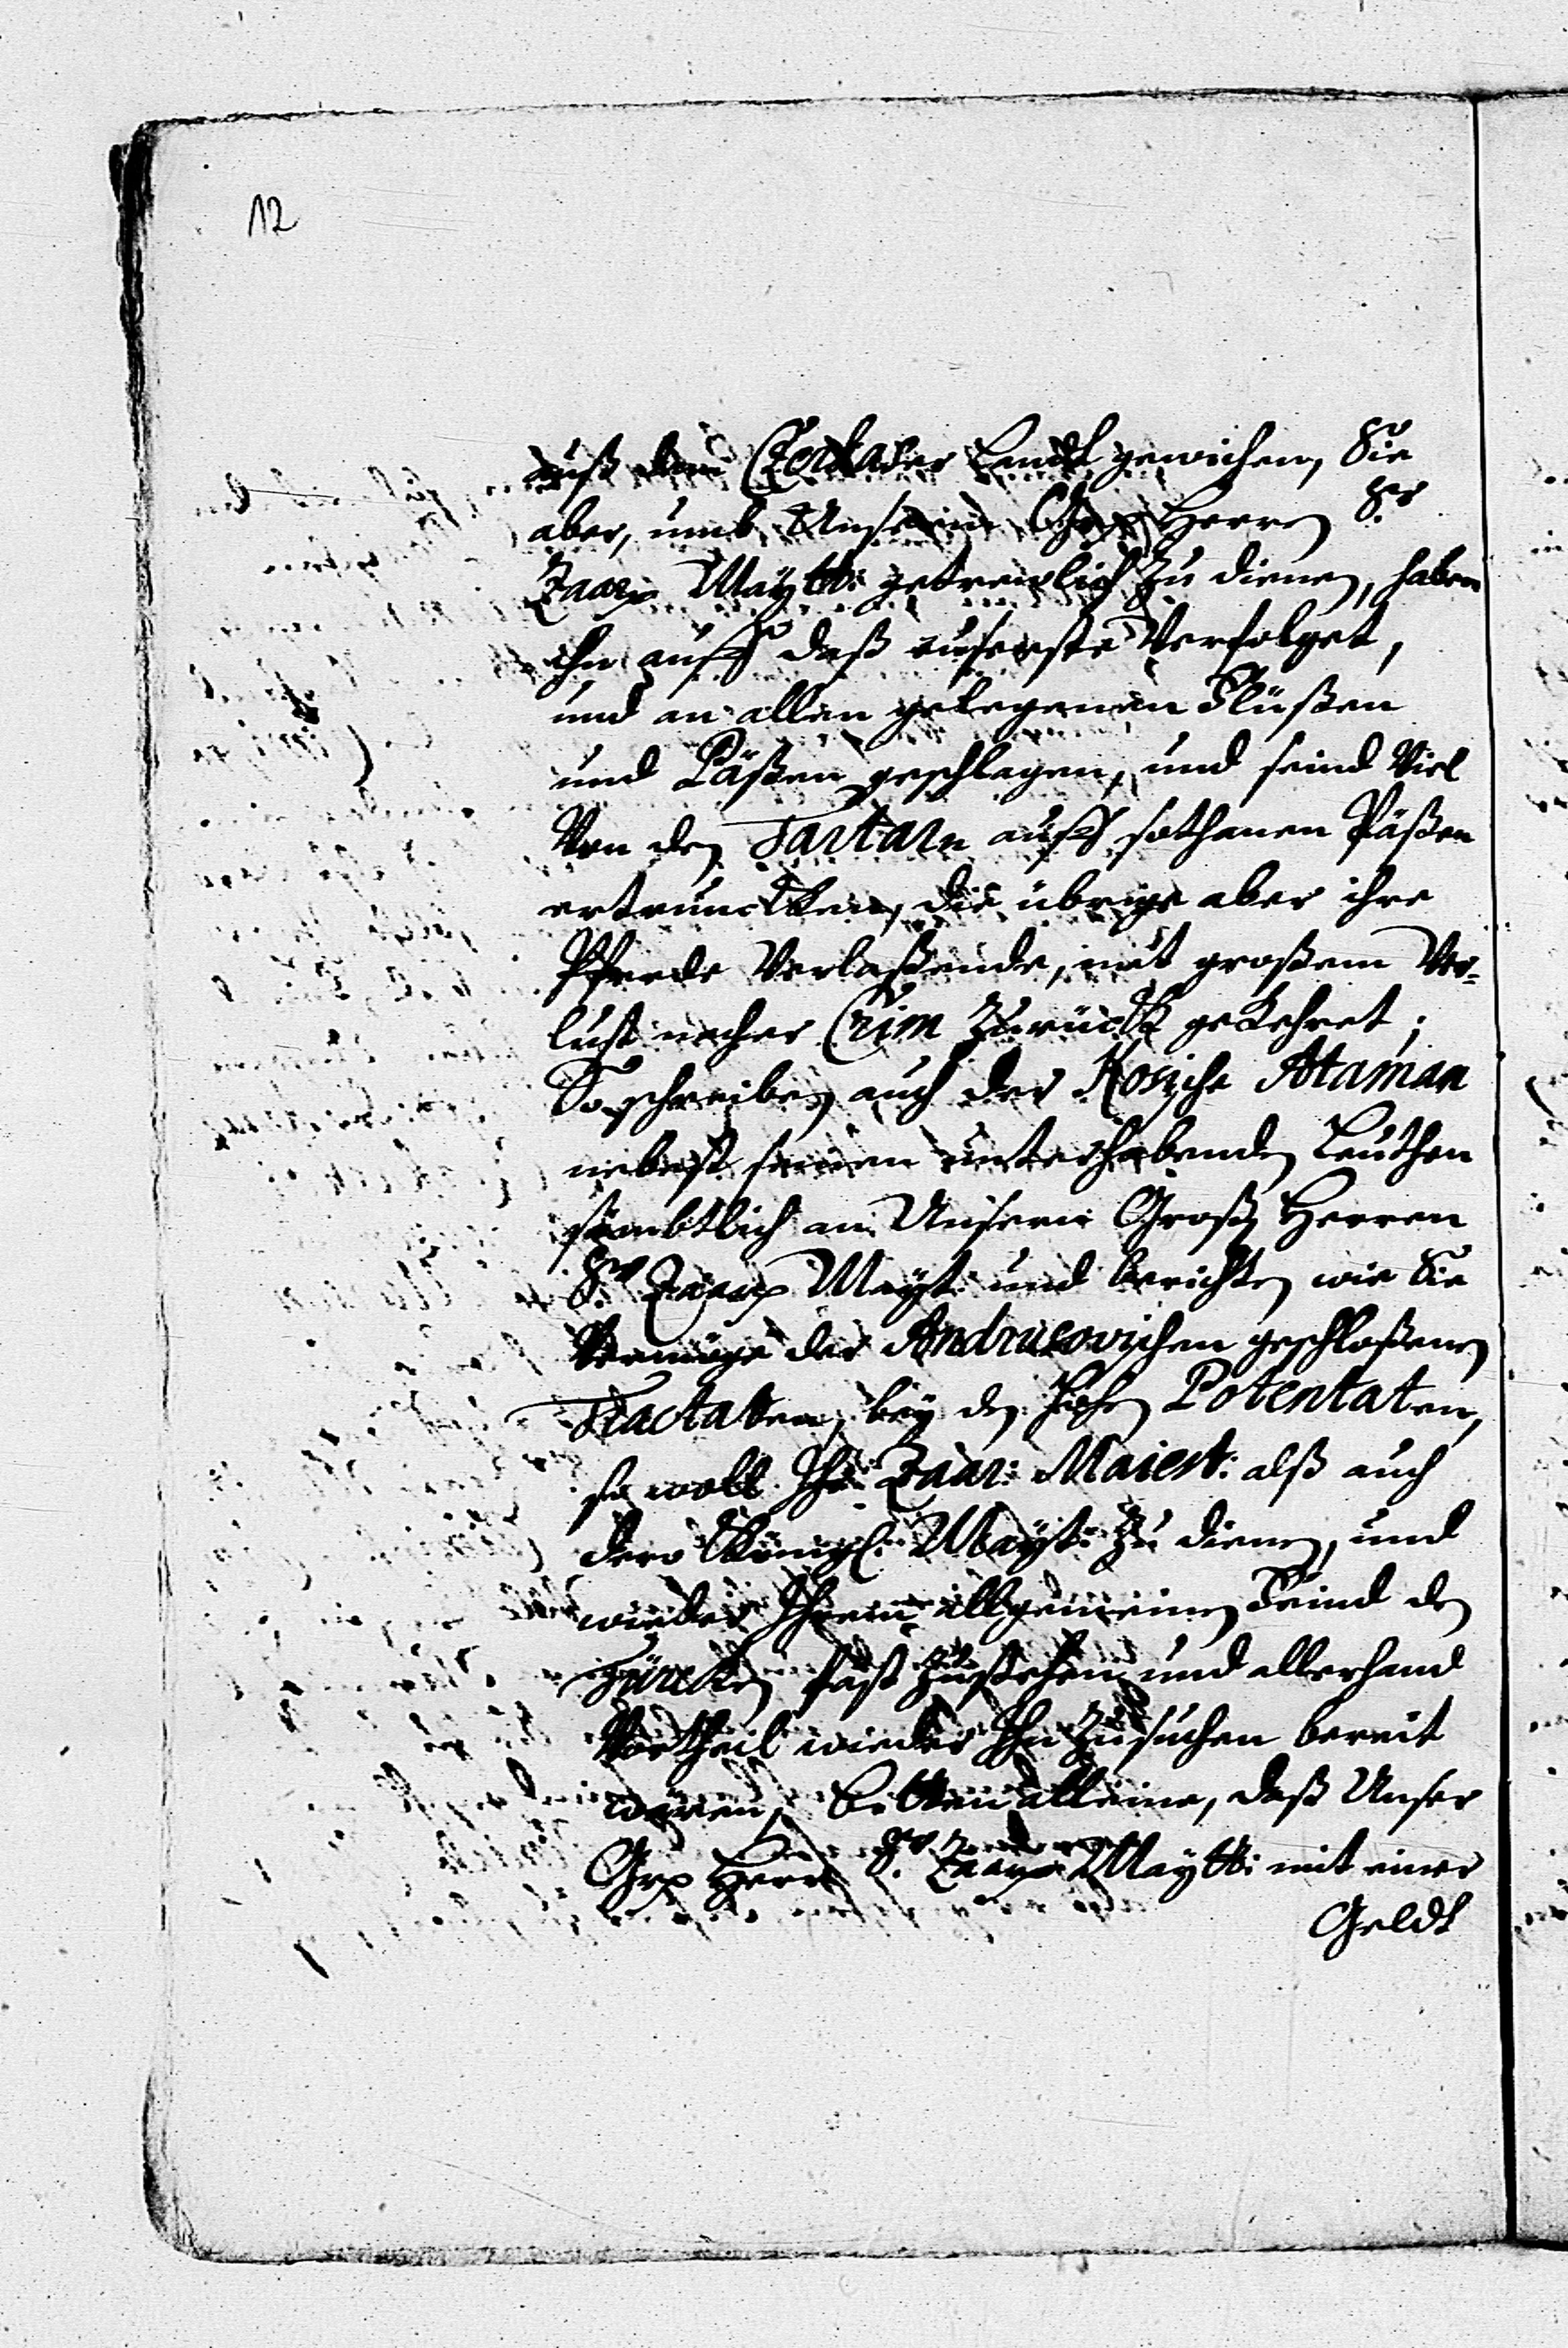 12
auß dem Czerkaßer Landt gewichen, Sie
aber, umb Unserm Groß Herren Sr
Zaar Maytt: getreulich zu dienen, haben
ihn auff daß euserste Verfolget,
und an allen gelegenen Flüßen
und Päßen geschlagen, und seind Viel
Von den Tartarn auff sothanen Päßen
ertruncken, die übrige aber ihre
Pferde Verlaßende, mit großem Ver-
lust nacher Crim zurück gekehret;
So schreiben auch der Koszche Ataman
nebenst seinen unterhabenden Leuthen
sämbtlich an Unsern Groß Herren
Sr Zaar Mayt: und berichten wie Sie
Vermöge der Andrusovschen geschloßenen
Tractaten, bey den hohen Potentaten,
so woll Ihr Zaar: Maiest: alß auch
dero Königl: Mayt: zu dienen, und
wieder Ihren allgemeinen Feind den
Türcken fast zustehen und allerhand
Vortheil wieder Ihn zusuchen bereit
wären, bitten alleine, daß Unser
Groß Herr Sr Zaar Maytt: mit einer
Geldt